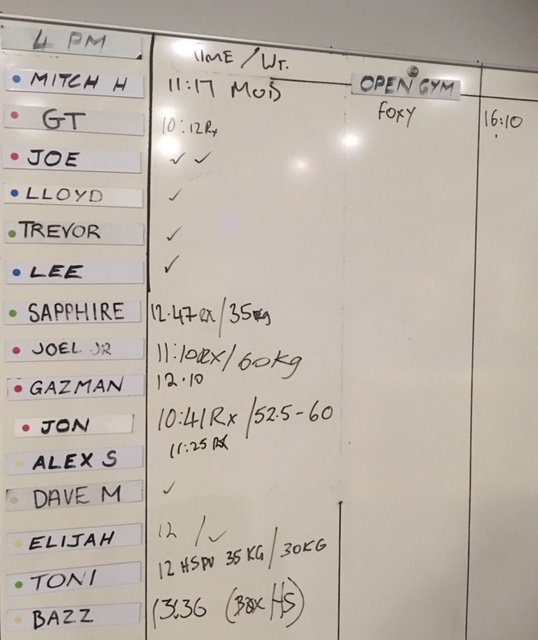 4 PM TIME / WT.
MITCH H 11:17 MOD OPEN GYM
GT 10:12 Rx FOXY 16:10
JOE ✓ ✓
LLOYD ✓
TREVOR ✓
LEE ✓
SAPPHIRE 12:47 RX / 35kg
JOEL JR 11:10 RX / 60kg
GAZMAN 12.10
JON 10:41 Rx / 52.5-60
ALEX S 11:25 RX
DAVE M ✓
ELIJAH 12 / ✓
TONI 12 HSPU 35 KG / 30KG
BAZZ 13:36 HS